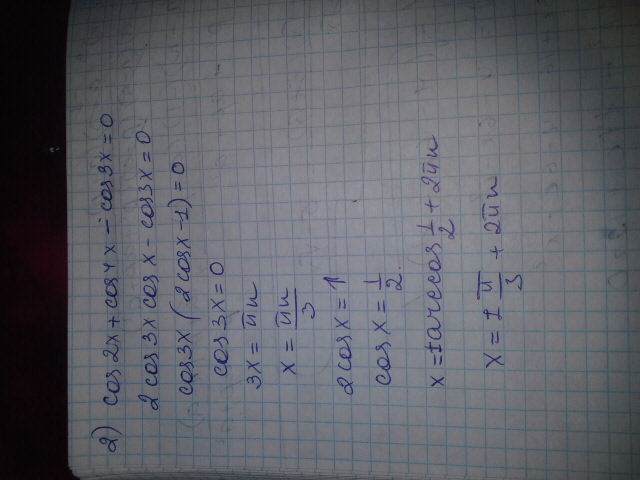 2) cos 2x + cos 4x - cos 3x = 0
2 cos 3x cos x - cos 3x = 0
cos 3x (2 cos x - 1) = 0
cos 3x = 0
3x = πn
x = πn/3
2 cos x = 1
cos x = 1/2.
x = ±arccos 1/2 + 2πn
x = ± π/3 + 2πn